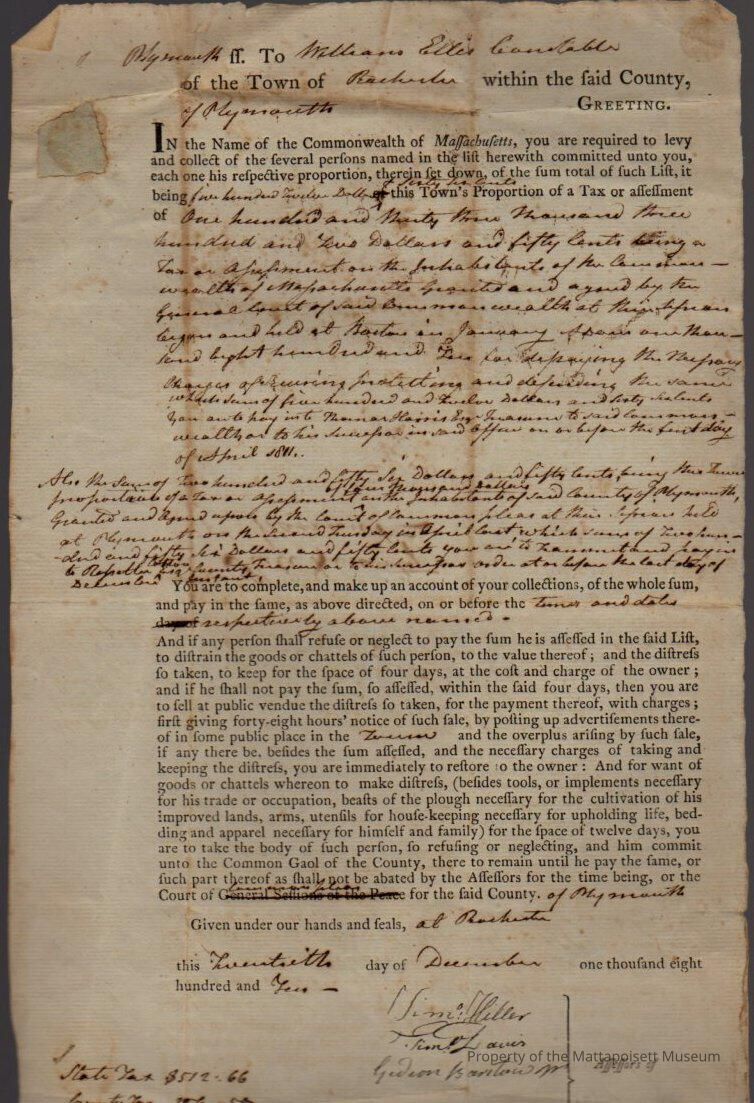 Plymouth ſſ. To William Ellis Constable
of the Town of Rochester within the ſaid County,
of Plymouth
GREETING.
IN the Name of the Commonwealth of Maſſachuſetts, you are required to levy
and collect of the ſeveral perſons named in the liſt herewith committed unto you,
each one his reſpective proportion, therein ſet down, of the ſum total of ſuch Liſt, it
& sixty six cents
being five hundred Twelve Dollars this Town's Proportion of a Tax or aſſeſſment
of One hundred and thirty three Thousand three
hundred and Two Dollars and fifty Cents being a
Tax or Assessment on the Inhabitants of the Common-
wealth of Massachusetts Granted and agreed by the
General Court of said Commonwealth at their session
begun and held at Boston in January one thou-
sand eight hundred and Ten for defraying the Necessary
Charges of Securing protecting and defending the same
which sum of five hundred and twelve Dollars and sixty six cents
you are to pay into Thomas Harris Esqr Treasurer to said Common-
wealth or to his successor in said office on or before the first day
of April 1811.
Also the sum of Two hundred and fifty Six Dollars and fifty cents, being this Towns
of four thousand dollars
proportion of a Tax or Assessment on the Inhabitants of said County of Plymouth,
Granted and agreed upon by the Court of Common pleas at their Session held
at Plymouth on the second Tuesday in April last which sum of Two hun-
-dred and fifty Six Dollars and fifty cents you are to transmit and pay in
to Rossetter Cotton Esqr County Treasurer or to his successor on or before the last day of
December Instant
You are to complete, and make up an account of your collections, of the whole ſum,
and pay in the ſame, as above directed, on or before the times and dates
day of respectively above named.
And if any perſon ſhall refuſe or neglect to pay the ſum he is aſſeſſed in the ſaid Liſt,
to diſtrain the goods or chattels of ſuch perſon, to the value thereof; and the diſtreſs
ſo taken, to keep for the ſpace of four days, at the coſt and charge of the owner;
and if he ſhall not pay the ſum, ſo aſſeſſed, within the ſaid four days, then you are
to ſell at public vendue the diſtreſs ſo taken, for the payment thereof, with charges;
firſt giving forty-eight hours' notice of ſuch ſale, by poſting up advertiſements there-
of in ſome public place in the Town and the overplus ariſing by ſuch ſale,
if any there be, beſides the ſum aſſeſſed, and the neceſſary charges of taking and
keeping the diſtreſs, you are immediately to reſtore to the owner: And for want of
goods or chattels whereon to make diſtreſs, (beſides tools, or implements neceſſary
for his trade or occupation, beaſts of the plough neceſſary for the cultivation of his
improved lands, arms, utenſils for houſe-keeping neceſſary for upholding life, bed-
ding and apparel neceſſary for himſelf and family) for the ſpace of twelve days, you
are to take the body of ſuch perſon, ſo refuſing or neglecting, and him commit
unto the Common Gaol of the County, there to remain until he pay the ſame, or
ſuch part thereof as ſhall not be abated by the Aſſeſſors for the time being, or the
Court of General Seſſions of the Peace for the ſaid County. of Plymouth
Given under our hands and ſeals, at Rochester
this Twentieth day of December one thouſand eight
hundred and Ten -
Simo. Miller
Timo. Davis
Gideon Barstow Jr
Aſſeſſors of
State Tax $512..66
Property of the Mattapoisett Museum